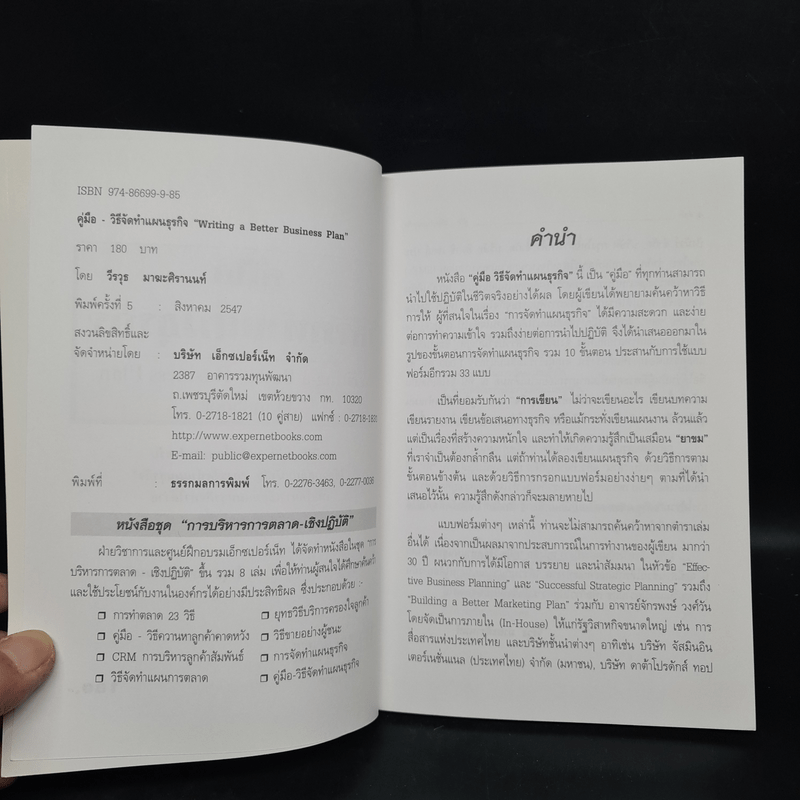 ISBN 974-86699-9-85
คู่มือ - วิธีจัดทำแผนธุรกิจ "Writing a Better Business Plan"
ราคา 180 บาท
โดย วีรวุธ มาฆะศิรานนท์
พิมพ์ครั้งที่ 5 : สิงหาคม 2547
สงวนลิขสิทธิ์และ
จัดจำหน่ายโดย : บริษัท เอ็กซเปอร์เน็ท จำกัด
2387 อาคารรวมทุนพัฒนา
ถ.เพชรบุรีตัดใหม่ เขตห้วยขวาง กท. 10320
โทร. 0-2718-1821 (10 คู่สาย) แฟกซ์ : 0-2718-1831
http://www.expernetbooks.com
E-mail: public@expernetbooks.com
พิมพ์ที่ : ธรรกมลการพิมพ์ โทร. 0-2276-3463, 0-2277-0036
หนังสือชุด "การบริหารการตลาด-เชิงปฏิบัติ"
ฝ่ายวิชาการและศูนย์ฝึกอบรมเอ็กซเปอร์เน็ท ได้จัดทำหนังสือในชุด "การ
บริหารการตลาด - เชิงปฏิบัติ" ขึ้น รวม 8 เล่ม เพื่อให้ท่านผู้สนใจได้ศึกษาค้นคว้า
และใช้ประโยชน์กับงานในองค์กรได้อย่างมีประสิทธิผล ซึ่งประกอบด้วย :-
❒ การทำตลาด 23 วิธี
❒ คู่มือ - วิธีความหาลูกค้าคาดหวัง
❒ CRM การบริหารลูกค้าสัมพันธ์
❒ วิธีจัดทำแผนการตลาด
❒ ยุทธวิธีบริการครองใจลูกค้า
❒ วิธีขายอย่างผู้ชนะ
❒ การจัดทำแผนธุรกิจ
❒ คู่มือ-วิธีจัดทำแผนธุรกิจ
คำนำ
หนังสือ "คู่มือ วิธีจัดทำแผนธุรกิจ" นี้ เป็น "คู่มือ" ที่ทุกท่านสามารถ
นำไปใช้ปฏิบัติในชีวิตจริงอย่างได้ผล โดยผู้เขียนได้พยายามค้นคว้าหาวิธี
การให้ ผู้ที่สนใจในเรื่อง "การจัดทำแผนธุรกิจ" ได้มีความสะดวก และง่าย
ต่อการทำความเข้าใจ รวมถึงง่ายต่อการนำไปปฏิบัติ จึงได้นำเสนอออกมาใน
รูปของขั้นตอนการจัดทำแผนธุรกิจ รวม 10 ขั้นตอน ประสานกับการใช้แบบ
ฟอร์มอีกรวม 33 แบบ
เป็นที่ยอมรับกันว่า "การเขียน" ไม่ว่าจะเขียนอะไร เขียนบทความ
เขียนรายงาน เขียนข้อเสนอทางธุรกิจ หรือแม้กระทั่งเขียนแผนงาน ล้วนแล้ว
แต่เป็นเรื่องที่สร้างความหนักใจ และทำให้เกิดความรู้สึกเป็นเสมือน "ยาขม"
ที่เราจำเป็นต้องกล้ำกลืน แต่ถ้าท่านได้ลองเขียนแผนธุรกิจ ด้วยวิธีการตาม
ขั้นตอนข้างต้น และด้วยวิธีการกรอกแบบฟอร์มอย่างง่ายๆ ตามที่ได้นำ
เสนอไว้นั้น ความรู้สึกดังกล่าวก็จะมลายหายไป
แบบฟอร์มต่างๆ เหล่านี้ ท่านจะไม่สามารถค้นคว้าหาจากตำราเล่ม
อื่นได้ เนื่องจากเป็นผลมาจากประสบการณ์ในการทำงานของผู้เขียน มากว่า
30 ปี ผนวกกับการได้มีโอกาส บรรยาย และนำสัมมนา ในหัวข้อ "Effec-
tive Business Planning" และ "Successful Strategic Planning" รวมถึง
"Building a Better Marketing Plan" ร่วมกับ อาจารย์จักรพงษ์ วงศ์วัน
โดยจัดเป็นการภายใน (In-House) ให้แก่รัฐวิสาหกิจขนาดใหญ่ เช่น การ
สื่อสารแห่งประเทศไทย และบริษัทชั้นนำต่างๆ อาทิเช่น บริษัท จัสมินอิน
เตอร์เนชั่นแนล (ประเทศไทย) จำกัด (มหาชน), บริษัท ดาต้าโปรดักส์ ทอป